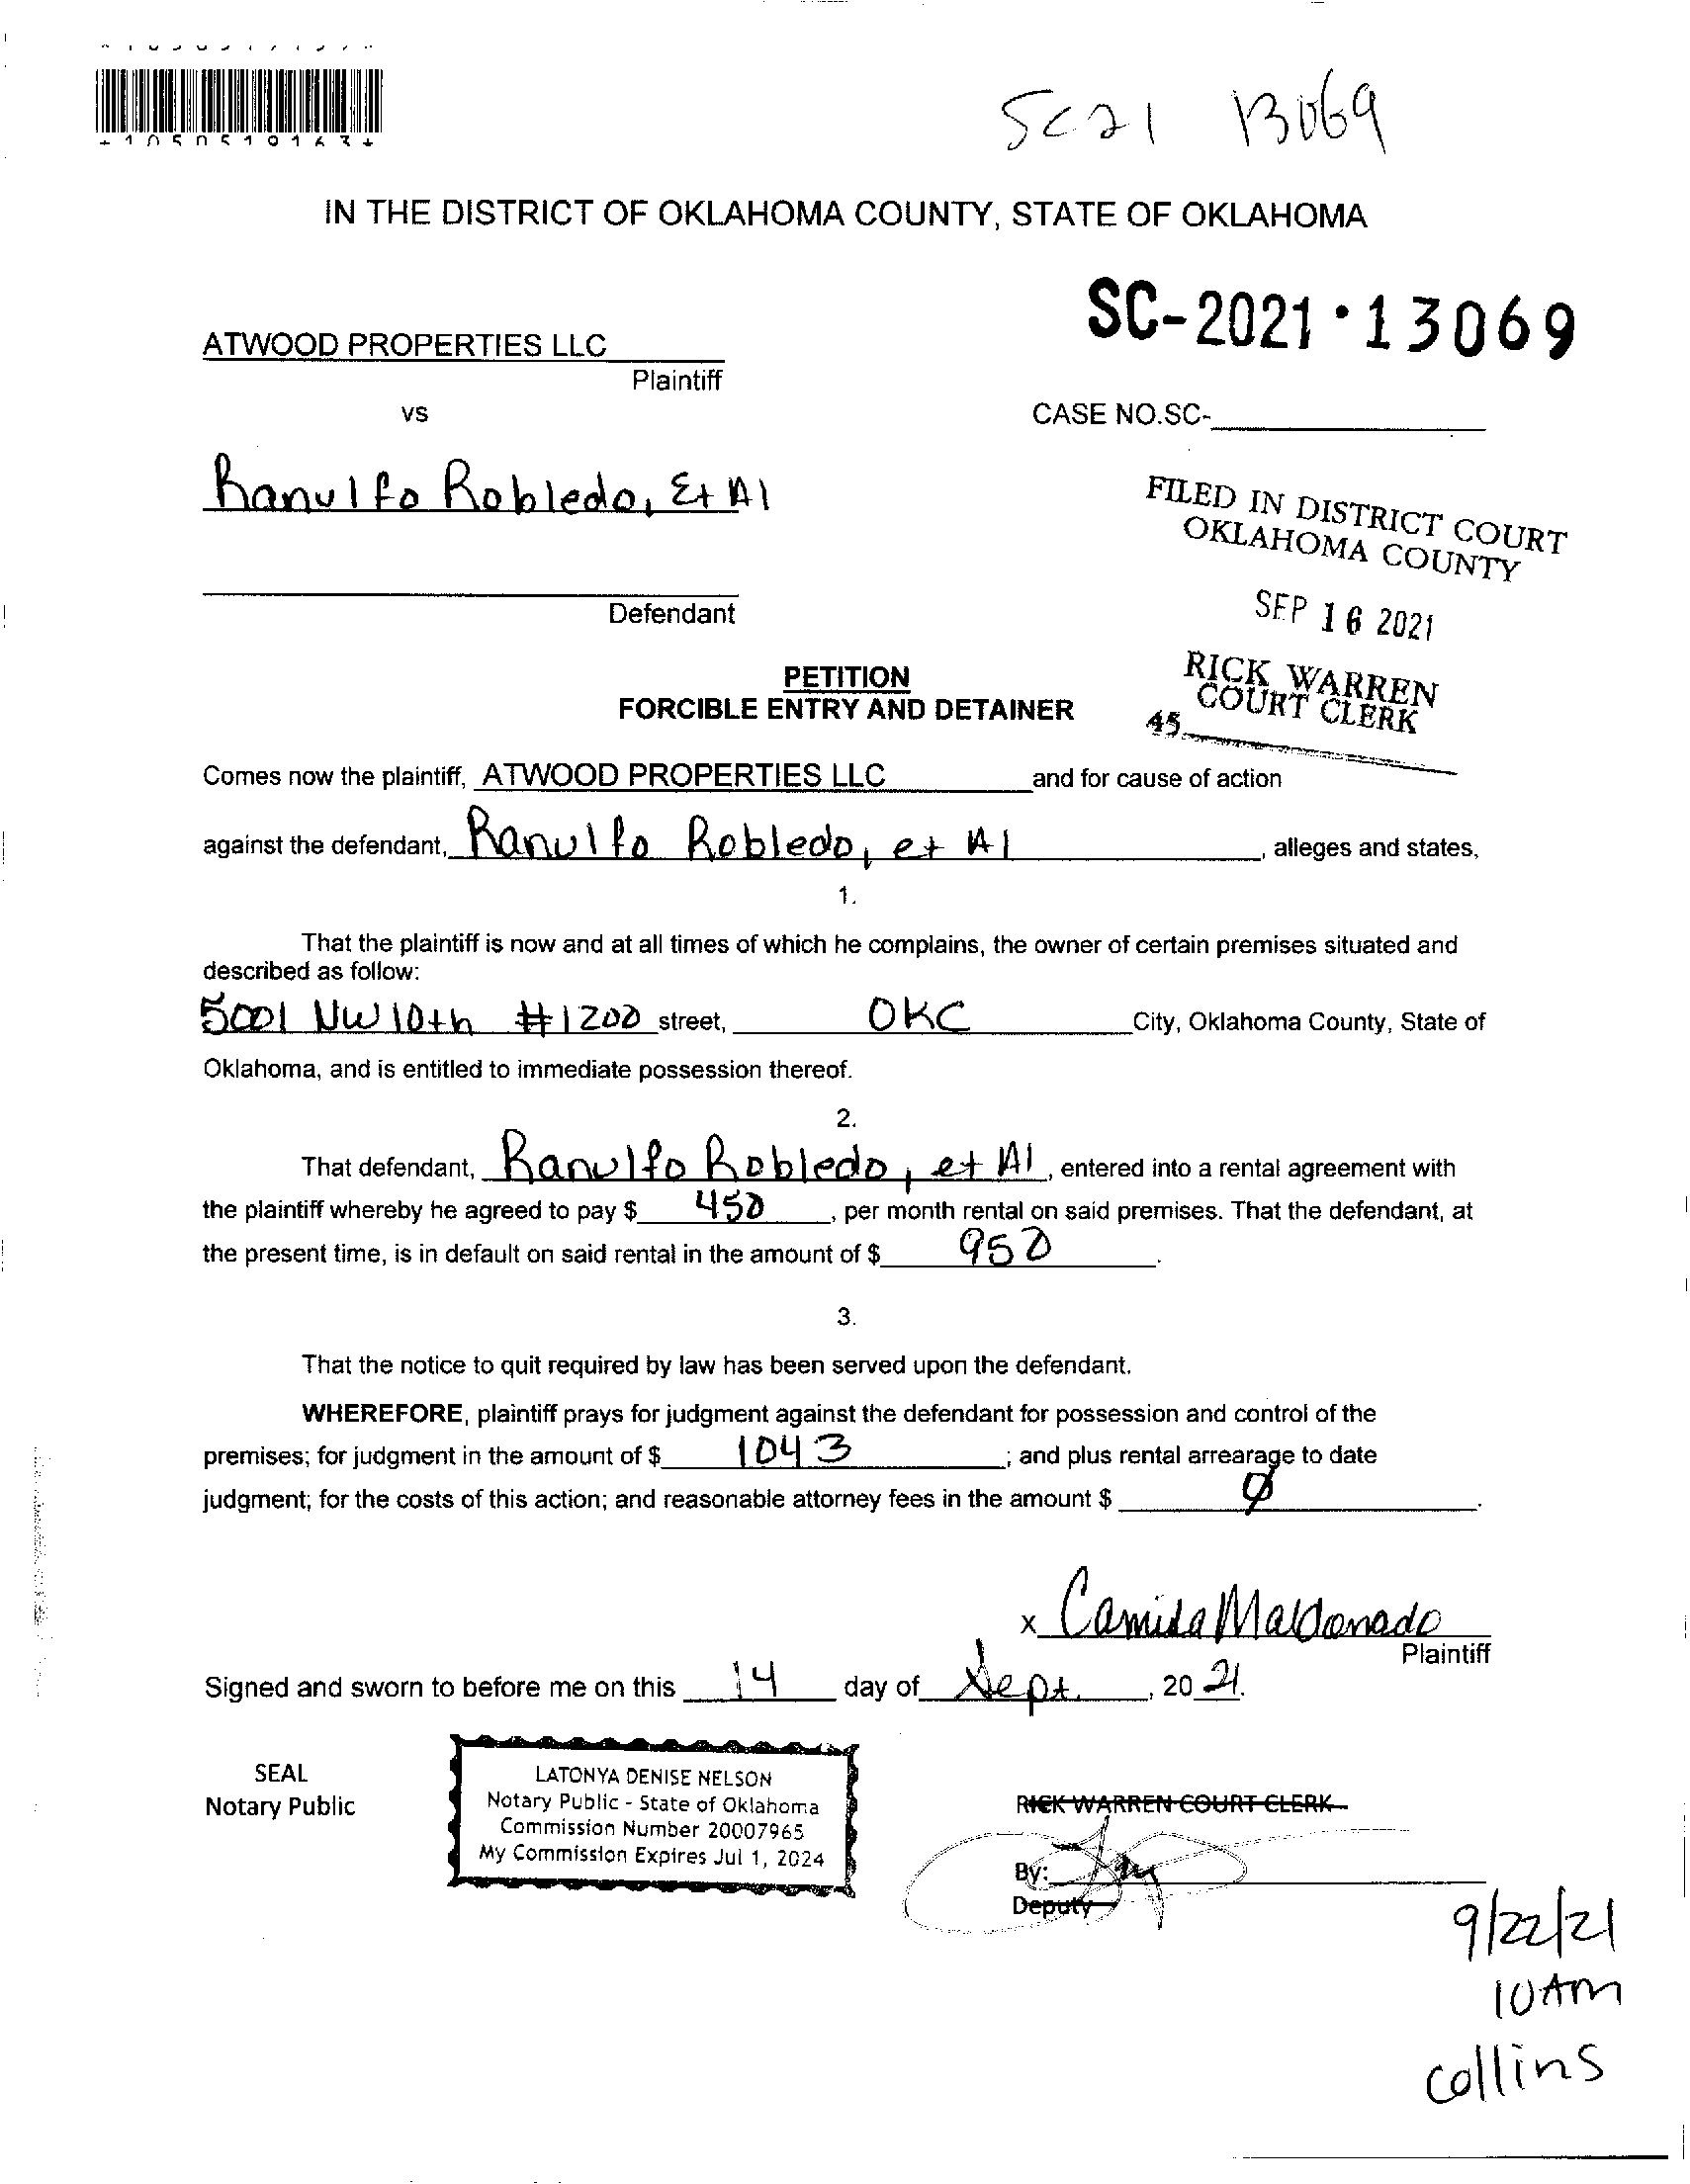 SC21 13069
IN THE DISTRICT OF OKLAHOMA COUNTY, STATE OF OKLAHOMA
SC-2021·13069
ATWOOD PROPERTIES LLC
Plaintiff
vs
CASE NO.SC-
Ranulfo Robledo, Et Al
FILED IN DISTRICT COURT
OKLAHOMA COUNTY
Defendant
SEP 16 2021
PETITION
FORCIBLE ENTRY AND DETAINER
RICK WARREN
COURT CLERK
45
Comes now the plaintiff, ATWOOD PROPERTIES LLC and for cause of action
against the defendant, Ranulfo Robledo, et Al, alleges and states,
1.
That the plaintiff is now and at all times of which he complains, the owner of certain premises situated and
described as follow:
5001 NW 10th #1200 street, OKC City, Oklahoma County, State of
Oklahoma, and is entitled to immediate possession thereof.
2.
That defendant, Ranulfo Robledo, et Al, entered into a rental agreement with
the plaintiff whereby he agreed to pay $ 450, per month rental on said premises. That the defendant, at
the present time, is in default on said rental in the amount of $ 950.
3.
That the notice to quit required by law has been served upon the defendant.
WHEREFORE, plaintiff prays for judgment against the defendant for possession and control of the
premises; for judgment in the amount of $ 1043; and plus rental arrearage to date
judgment; for the costs of this action; and reasonable attorney fees in the amount $ Ø.
x Camila Maldonado
Plaintiff
Signed and sworn to before me on this 14 day of Sept., 2021.
SEAL
Notary Public
LATONYA DENISE NELSON
Notary Public - State of Oklahoma
Commission Number 20007965
My Commission Expires Jul 1, 2024
RICK WARREN COURT CLERK
By:
Deputy
9/22/21
10AM
Collins